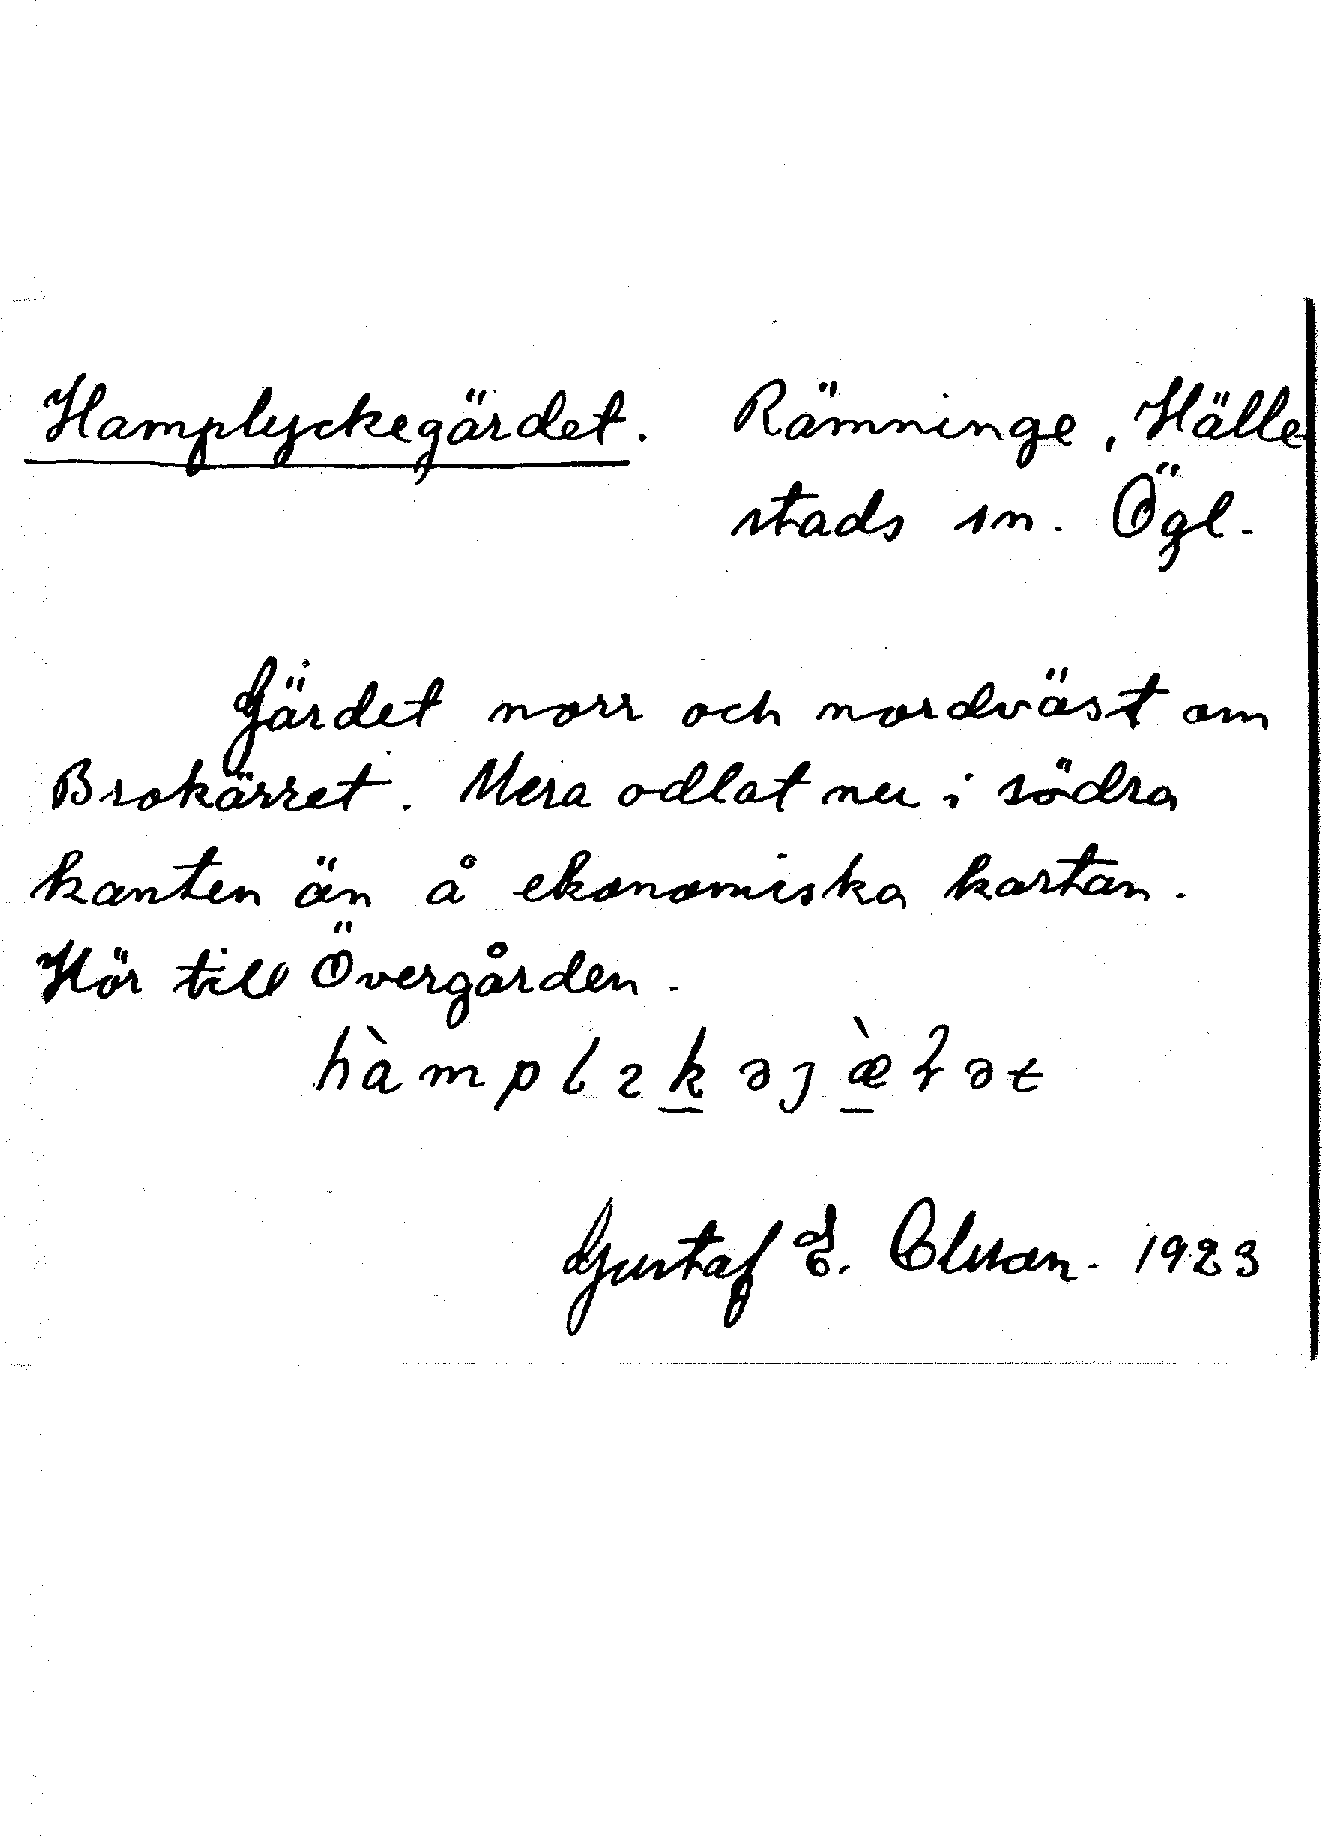 Hamplyckegärdet. Rämninge, Hälle
stads sn. Ögl.
Gärdet norr och nordväst om
Brokärret. Mera odlat nu i södra
kanten än å ekonomiska kartan.
Hör till Övergården.
Gustaf E. Olsson. 1923